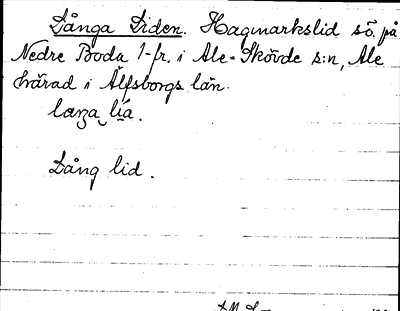 Långa Liden. Hagmarkslid sö. på
Nedre Boda 1-fr. i Ale-Skövde s:n, Ale
härad i Älfsborgs län.
laŋa lía.
Lång lid.